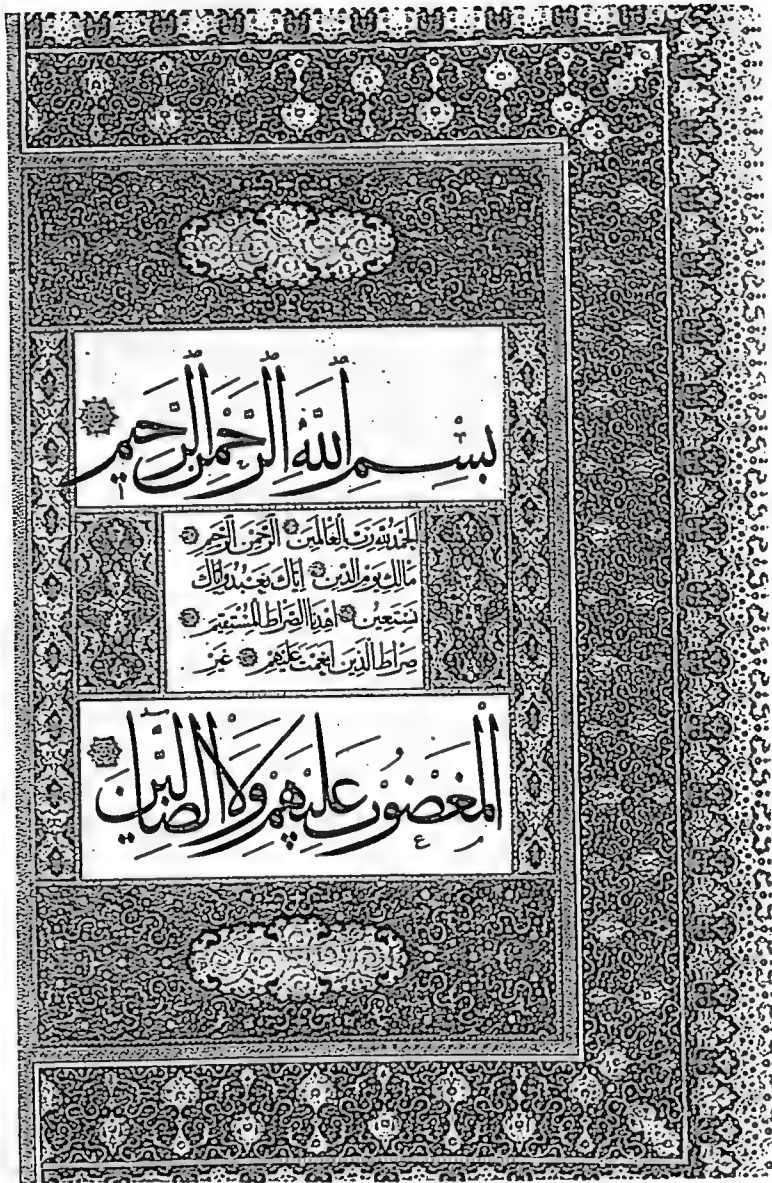 بِسْمِ اللَّهِ الرَّحْمَٰنِ الرَّحِيمِ
الْحَمْدُ لِلَّهِ رَبِّ الْعَالَمِينَ الرَّحْمَٰنِ الرَّحِيمِ
مَالِكِ يَوْمِ الدِّينِ إِيَّاكَ نَعْبُدُ وَإِيَّاكَ
نَسْتَعِينُ اهْدِنَا الصِّرَاطَ الْمُسْتَقِيمَ
صِرَاطَ الَّذِينَ أَنْعَمْتَ عَلَيْهِمْ غَيْرِ
الْمَغْضُوبِ عَلَيْهِمْ وَلَا الضَّالِّينَ